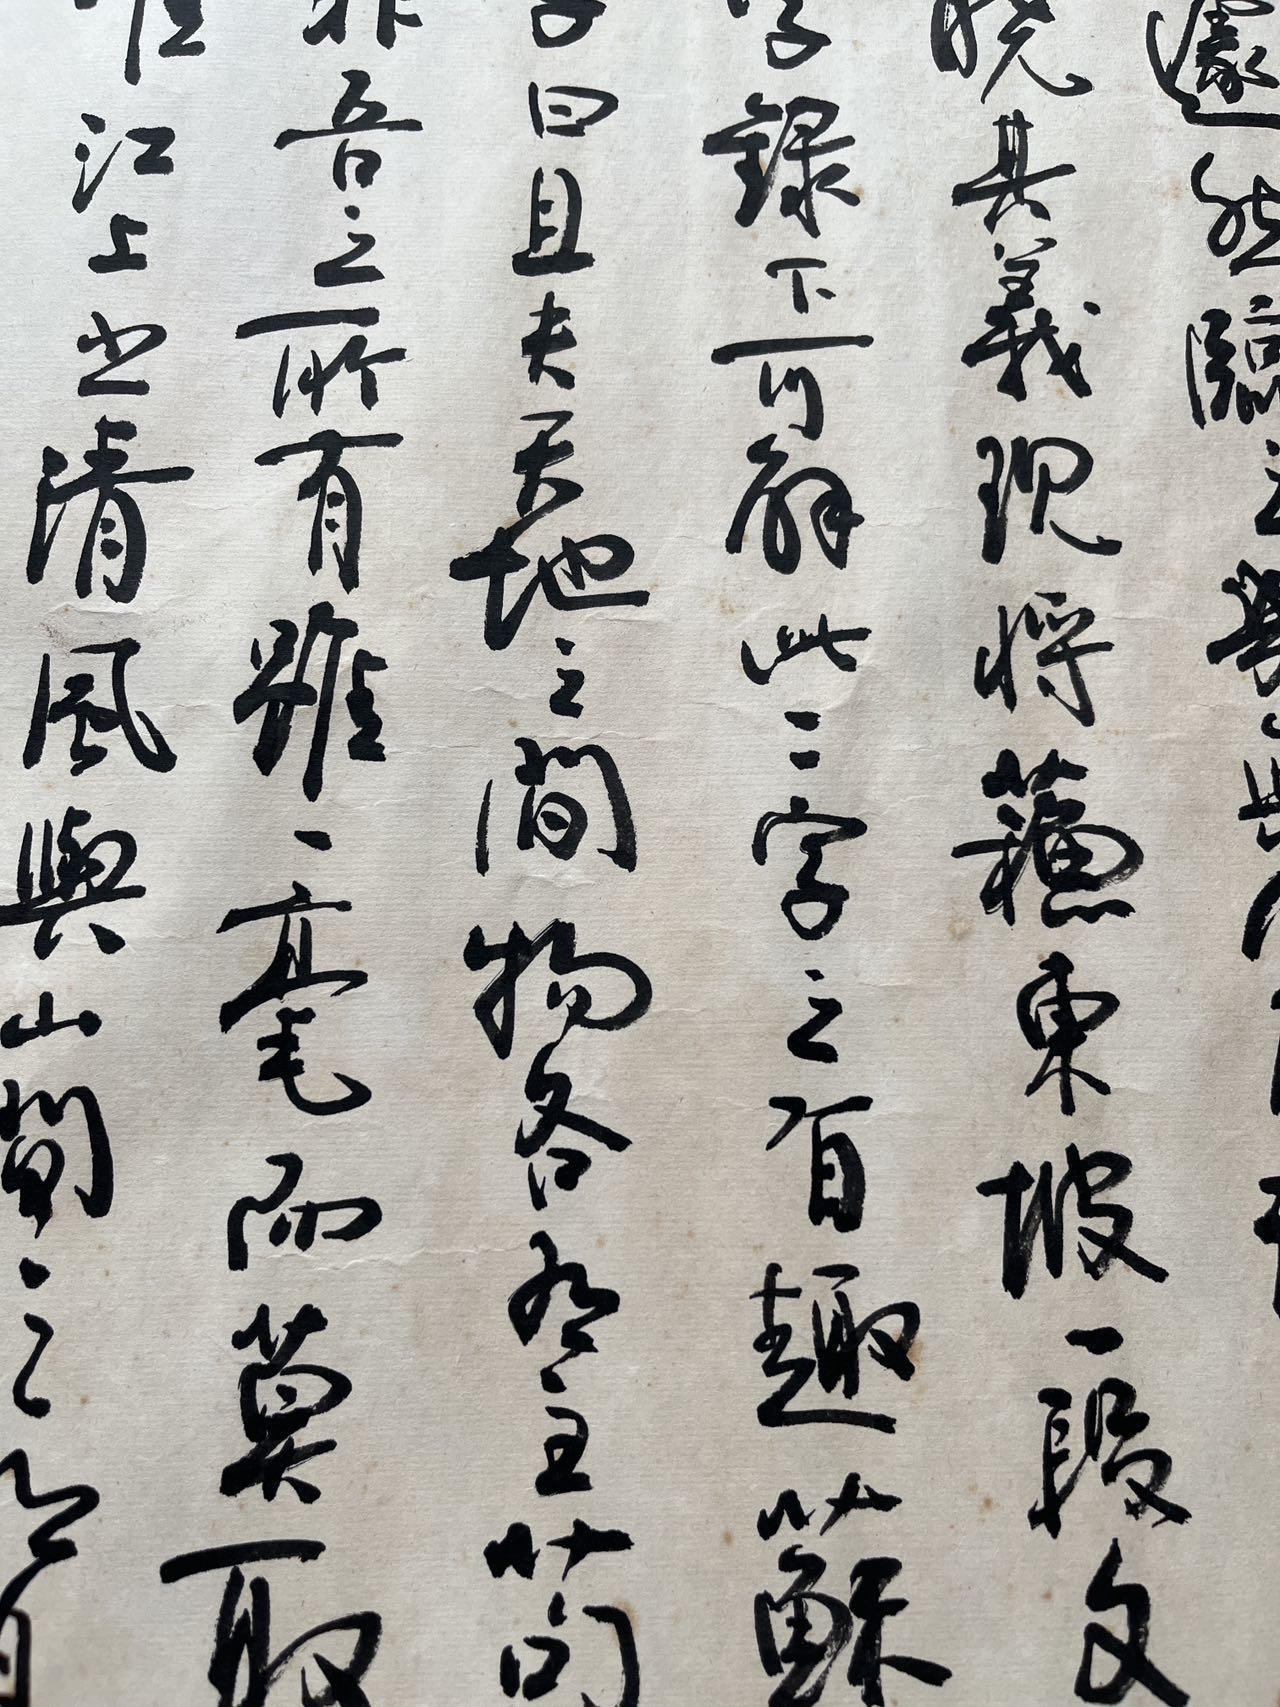 遽然臨之
曉其義現將蘇東坡一段文
字錄下可解此二字之有趣蘇
子曰且夫天地之間物各有主苟
非吾之所有雖一毫而莫取
惟江上之清風與山間之明月